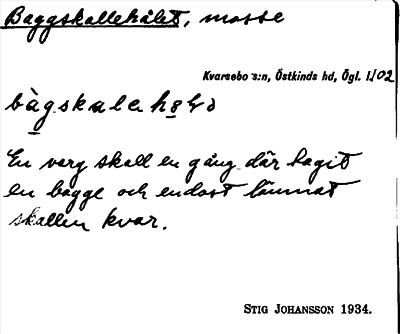 Baggskallehålet, mosse
Kvarsebo s:n, Östkinds hd, Ögl. 1/02
En varg skall en gång där tagit
en bagge och endast lämnat
skallen kvar.
STIG JOHANSSON 1934.